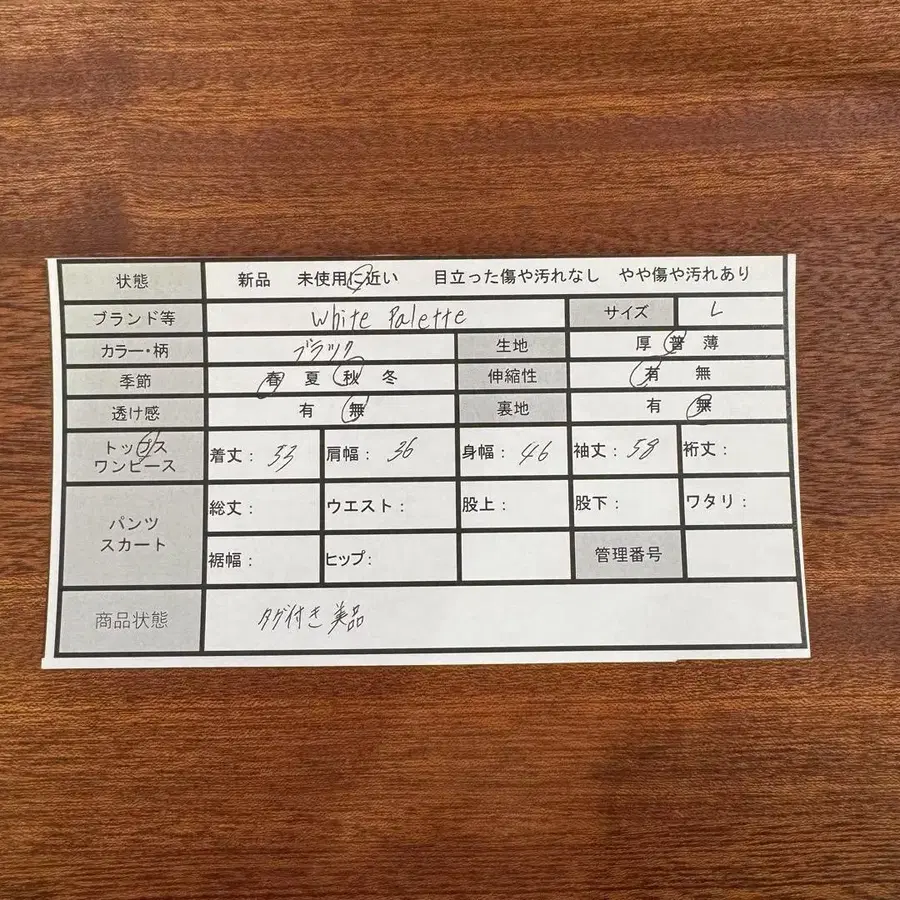 状態 新品 未使用に近い 目立った傷や汚れなし やや傷や汚れあり
ブランド等 White Palette サイズ L
カラー・柄 ブラック 生地 厚 普 薄
季節 春 夏 秋 冬 伸縮性 有 無
透け感 有 無 裏地 有 無
トップス
ワンピース
着丈: 53 肩幅: 36 身幅: 46 袖丈: 58 裄丈:
パンツ
スカート
総丈: ウエスト: 股上: 股下: ワタリ:
裾幅: ヒップ: 管理番号
商品状態 タグ付き美品